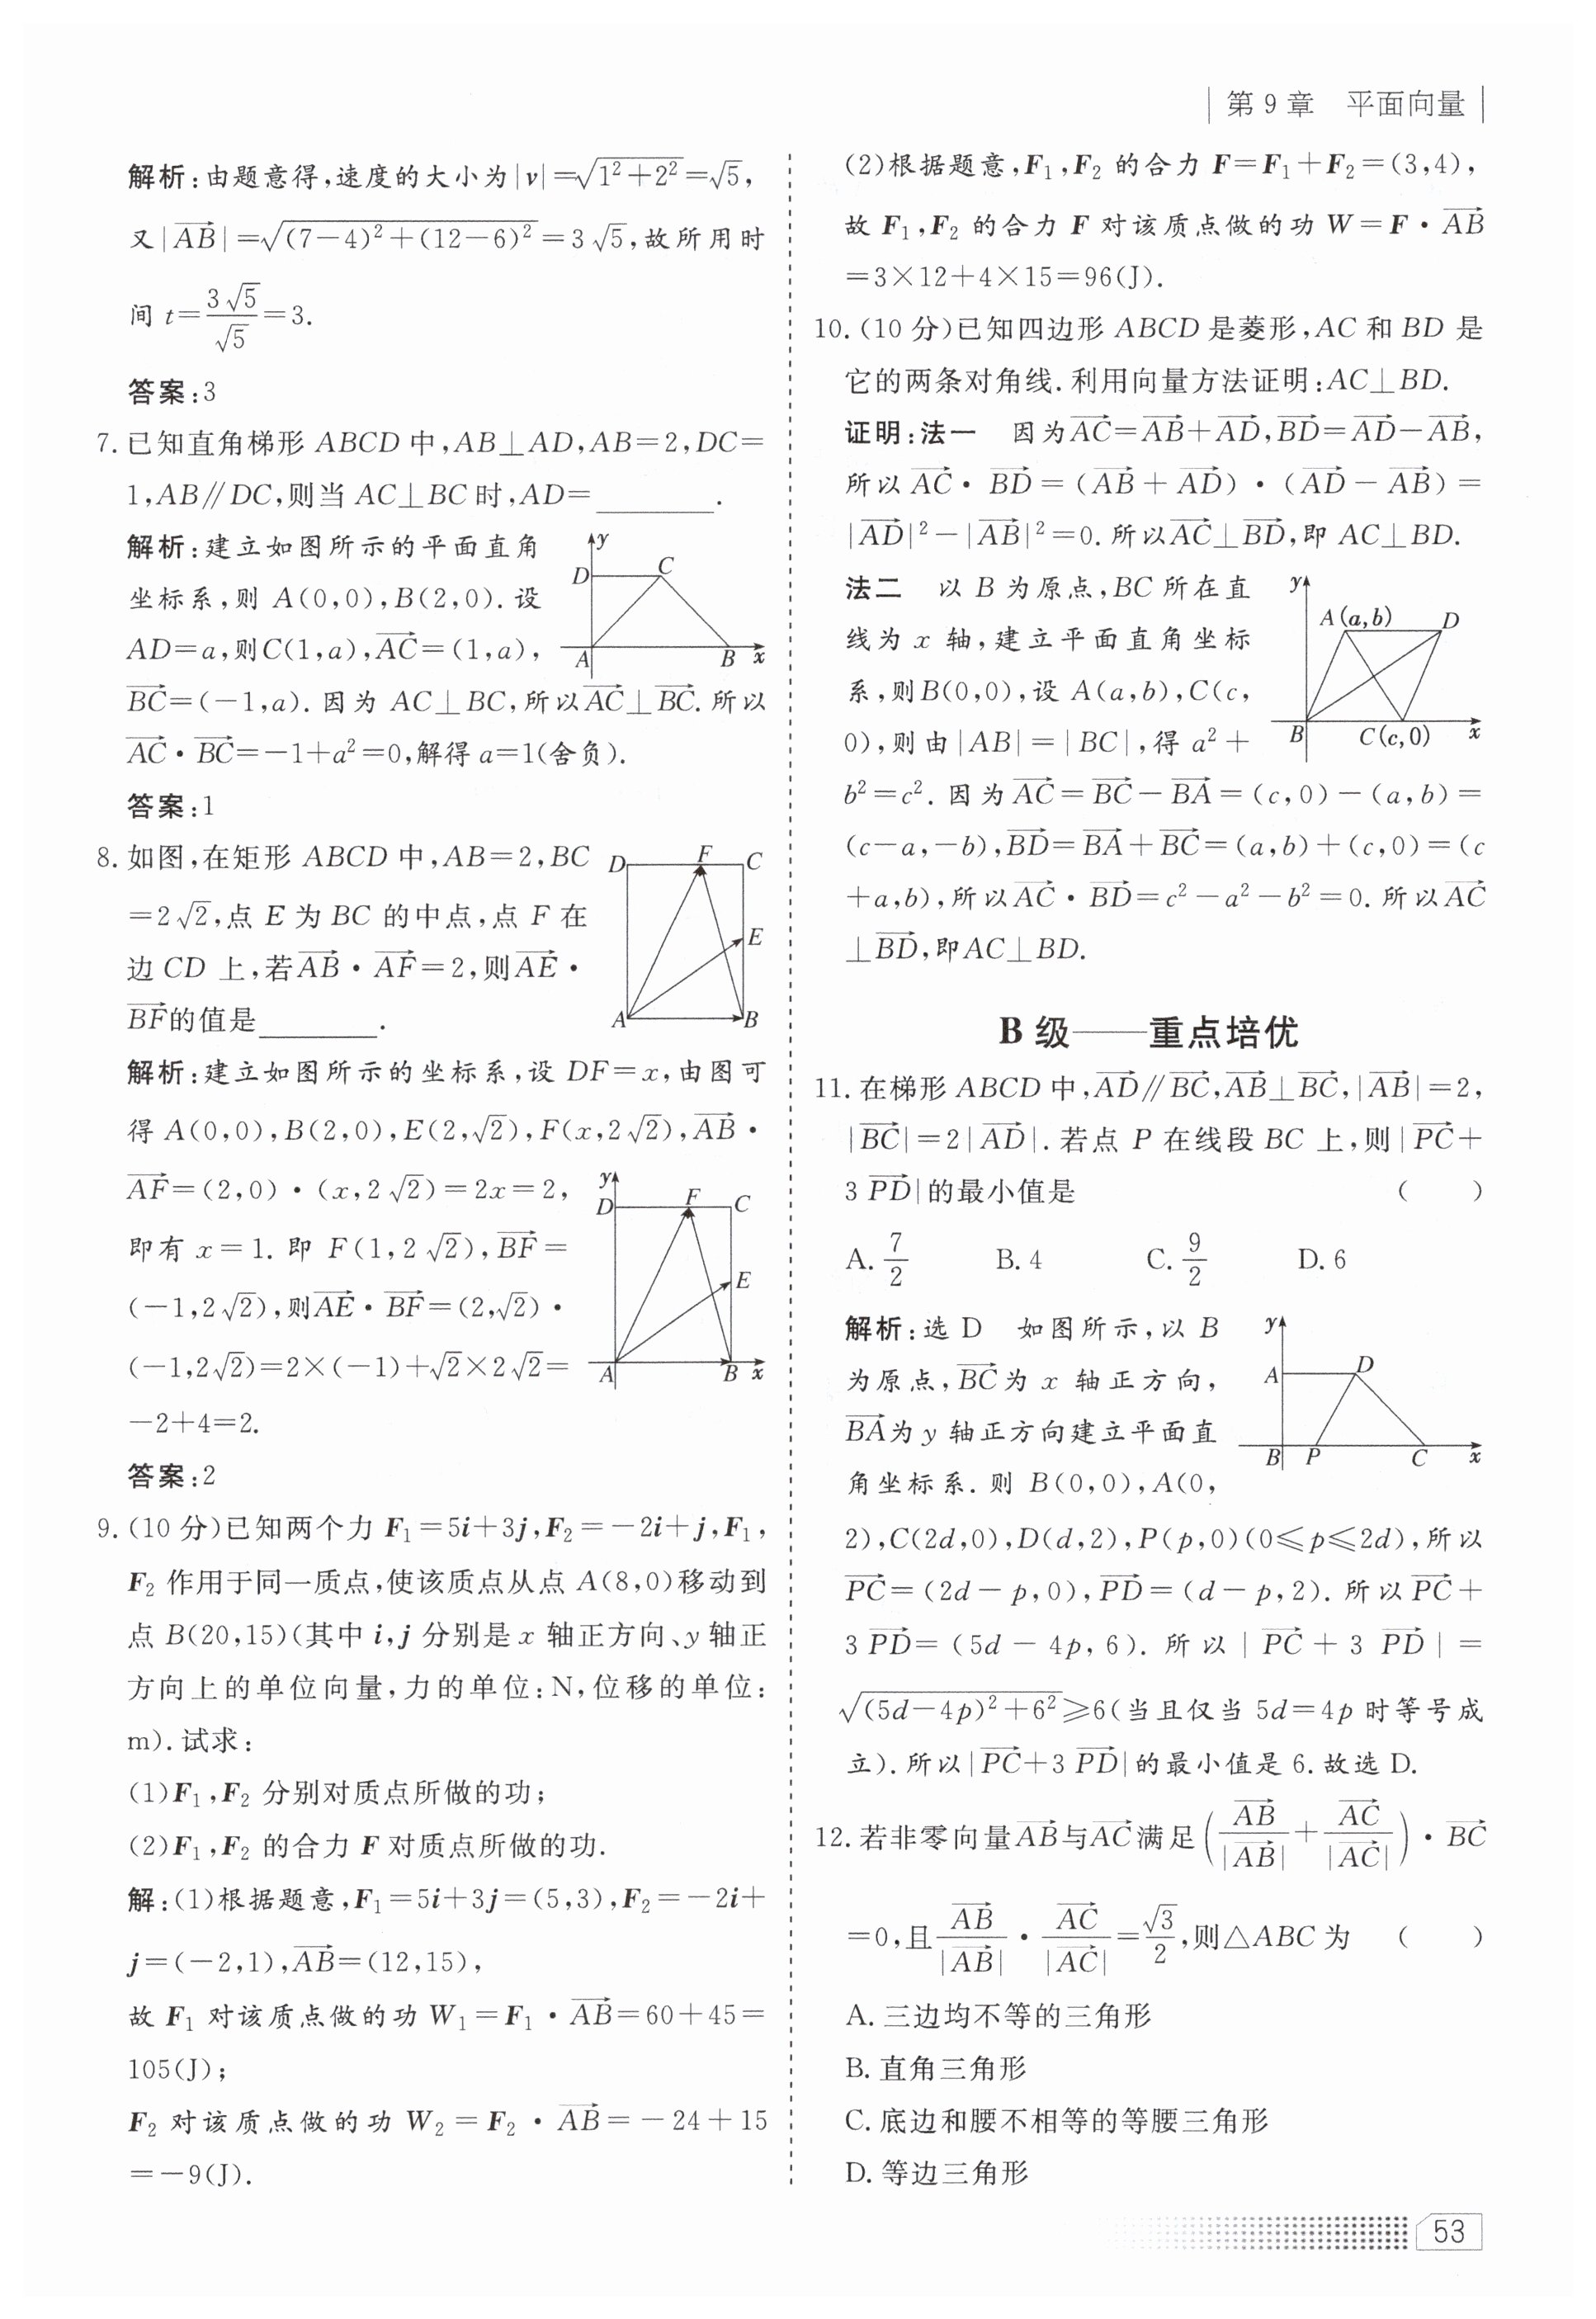 第9章 平面向量
解析:由题意得,速度的大小为|v|=√(1²+2²)=√5,
又|AB→|=√((7-4)²+(12-6)²)=3√5,故所用时
间 t=3√5/√5=3.
答案:3
7.已知直角梯形 ABCD 中,AB⊥AD,AB=2,DC=
1,AB∥DC,则当 AC⊥BC 时,AD=________.
解析:建立如图所示的平面直角
坐标系,则 A(0,0),B(2,0).设
AD=a,则C(1,a),AC→=(1,a),
y
D
C
A
B
x
BC→=(-1,a).因为 AC⊥BC,所以AC→⊥BC→.所以
AC→·BC→=-1+a²=0,解得 a=1(舍负).
答案:1
8.如图,在矩形 ABCD 中,AB=2,BC
=2√2,点 E 为 BC 的中点,点 F 在
边 CD 上,若AB→·AF→=2,则AE→·
BF→的值是________.
D
F
C
E
A
B
解析:建立如图所示的坐标系,设 DF=x,由图可
得 A(0,0),B(2,0),E(2,√2),F(x,2√2),AB→·
AF→=(2,0)·(x,2√2)=2x=2,
即有 x=1.即 F(1,2√2),BF→=
(-1,2√2),则AE→·BF→=(2,√2)·
(-1,2√2)=2×(-1)+√2×2√2=
-2+4=2.
y
D
F
C
E
A
B
x
答案:2
9.(10分)已知两个力 F₁=5i+3j,F₂=-2i+j,F₁,
F₂ 作用于同一质点,使该质点从点 A(8,0)移动到
点 B(20,15)(其中 i,j 分别是 x 轴正方向、y 轴正
方向上的单位向量,力的单位:N,位移的单位:
m).试求:
(1)F₁,F₂ 分别对质点所做的功;
(2)F₁,F₂ 的合力 F 对质点所做的功.
解:(1)根据题意,F₁=5i+3j=(5,3),F₂=-2i+
j=(-2,1),AB→=(12,15),
故 F₁ 对该质点做的功 W₁=F₁·AB→=60+45=
105(J);
F₂ 对该质点做的功 W₂=F₂·AB→=-24+15
=-9(J).
(2)根据题意,F₁,F₂ 的合力 F=F₁+F₂=(3,4),
故 F₁,F₂ 的合力 F 对该质点做的功 W=F·AB→
=3×12+4×15=96(J).
10.(10分)已知四边形 ABCD 是菱形,AC 和 BD 是
它的两条对角线.利用向量方法证明:AC⊥BD.
证明:法一 因为AC→=AB→+AD→,BD→=AD→-AB→,
所以 AC→·BD→=(AB→+AD→)·(AD→-AB→)=
|AD→|²-|AB→|²=0.所以AC→⊥BD→,即 AC⊥BD.
法二 以 B 为原点,BC 所在直
线为 x 轴,建立平面直角坐标
系,则B(0,0),设 A(a,b),C(c,
0),则由|AB|=|BC|,得 a²+
y
A(a,b)
D
B
C(c,0)
x
b²=c².因为AC→=BC→-BA→=(c,0)-(a,b)=
(c-a,-b),BD→=BA→+BC→=(a,b)+(c,0)=(c
+a,b),所以AC→·BD→=c²-a²-b²=0.所以AC→
⊥BD→,即AC⊥BD.
B级——重点培优
11.在梯形 ABCD 中,AD→∥BC→,AB→⊥BC→,|AB→|=2,
|BC→|=2|AD→|.若点 P 在线段 BC 上,则|PC→+
3PD→|的最小值是 ( )
A.7/2 B.4 C.9/2 D.6
解析:选 D 如图所示,以 B
为原点,BC→为 x 轴正方向,
BA→为 y 轴正方向建立平面直
角坐标系.则 B(0,0),A(0,
y
A
D
B
P
C
x
2),C(2d,0),D(d,2),P(p,0)(0≤p≤2d),所以
PC→=(2d-p,0),PD→=(d-p,2).所以PC→+
3PD→=(5d-4p,6).所以|PC→+3PD→|=
√((5d-4p)²+6²)≥6(当且仅当 5d=4p 时等号成
立).所以|PC→+3PD→|的最小值是 6.故选 D.
12.若非零向量AB→与AC→满足(AB→/|AB→|+AC→/|AC→|)·BC→
=0,且AB→/|AB→|·AC→/|AC→|=√3/2,则△ABC 为 ( )
A.三边均不等的三角形
B.直角三角形
C.底边和腰不相等的等腰三角形
D.等边三角形
53